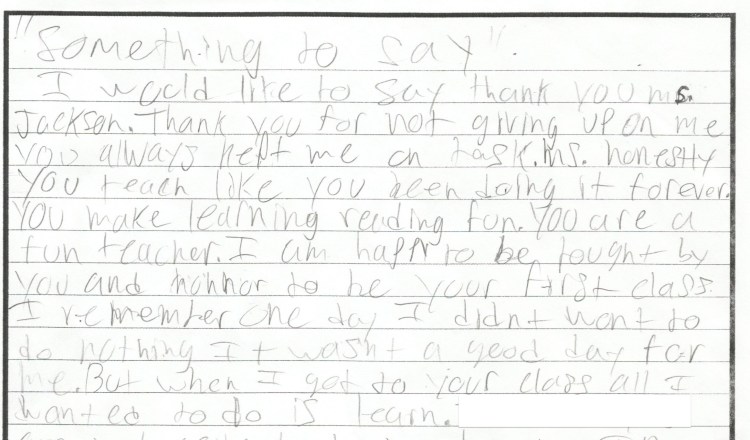 "Something to say".
I would like to say thank you ms.
Jackson. Thank you for not giving up on me
you always kept me on task. Ms. honestly
you teach like you been doing it forever.
You make learning reading fun. You are a
fun teacher. I am happy to be tought by
you and honnor to be your first class.
I remember one day I didnt want to
do nothing It wasnt a good day for
me. But when I got to your class all I
wanted to do is learn.